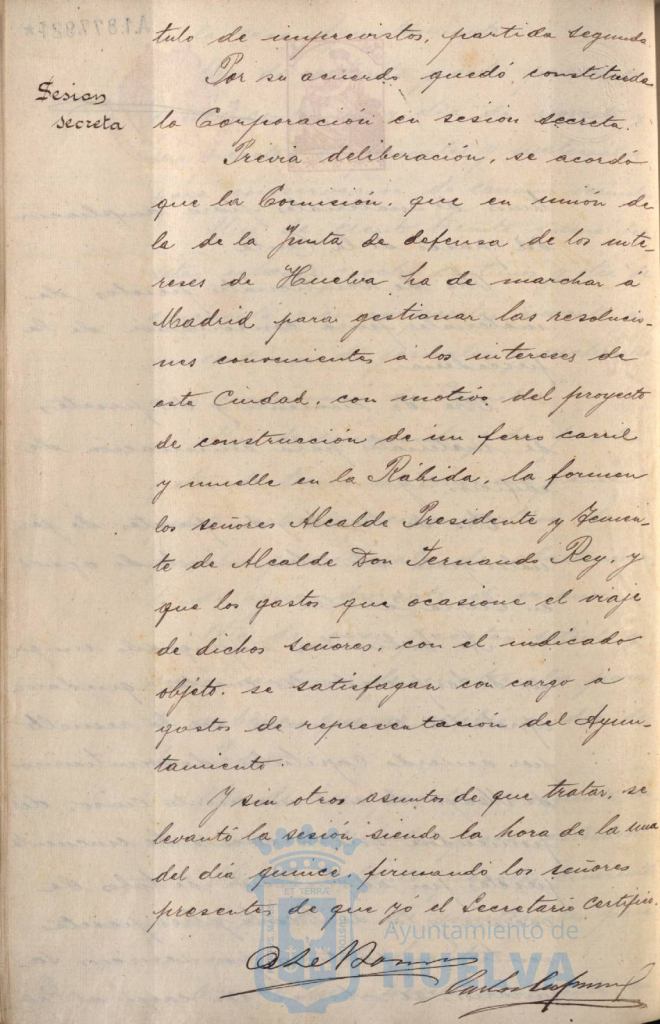 tulo de imprevistos, partida segunda.
Por su acuerdo quedó constituida
Sesion
secreta
la Corporación en sesión secreta.
Previa deliberación, se acordó
que la Comisión, que en unión de
la de la Junta de defensa de los inte-
reses de Huelva ha de marchar á
Madrid para gestionar las resolucio-
nes convenientes á los intereses de
esta Ciudad, con motivo del proyecto
de construcción de un ferro carril
y muelle en la Rábida, la formen
los señores Alcalde Presidente y Tenien-
te de Alcalde Don Fernando Rey, y
que los gastos que ocasione el viaje
de dichos señores, con el indicado
objeto, se satisfagan con cargo á
gastos de representación del Ayun-
tamiento.
Y sin otros asuntos de que tratar, se
levantó la sesión siendo la hora de la una
del día quince, firmando los señores
presentes de que yó el Secretario certifico.
ET TERRÆ
Ayuntamiento de
HUELVA
Carlos